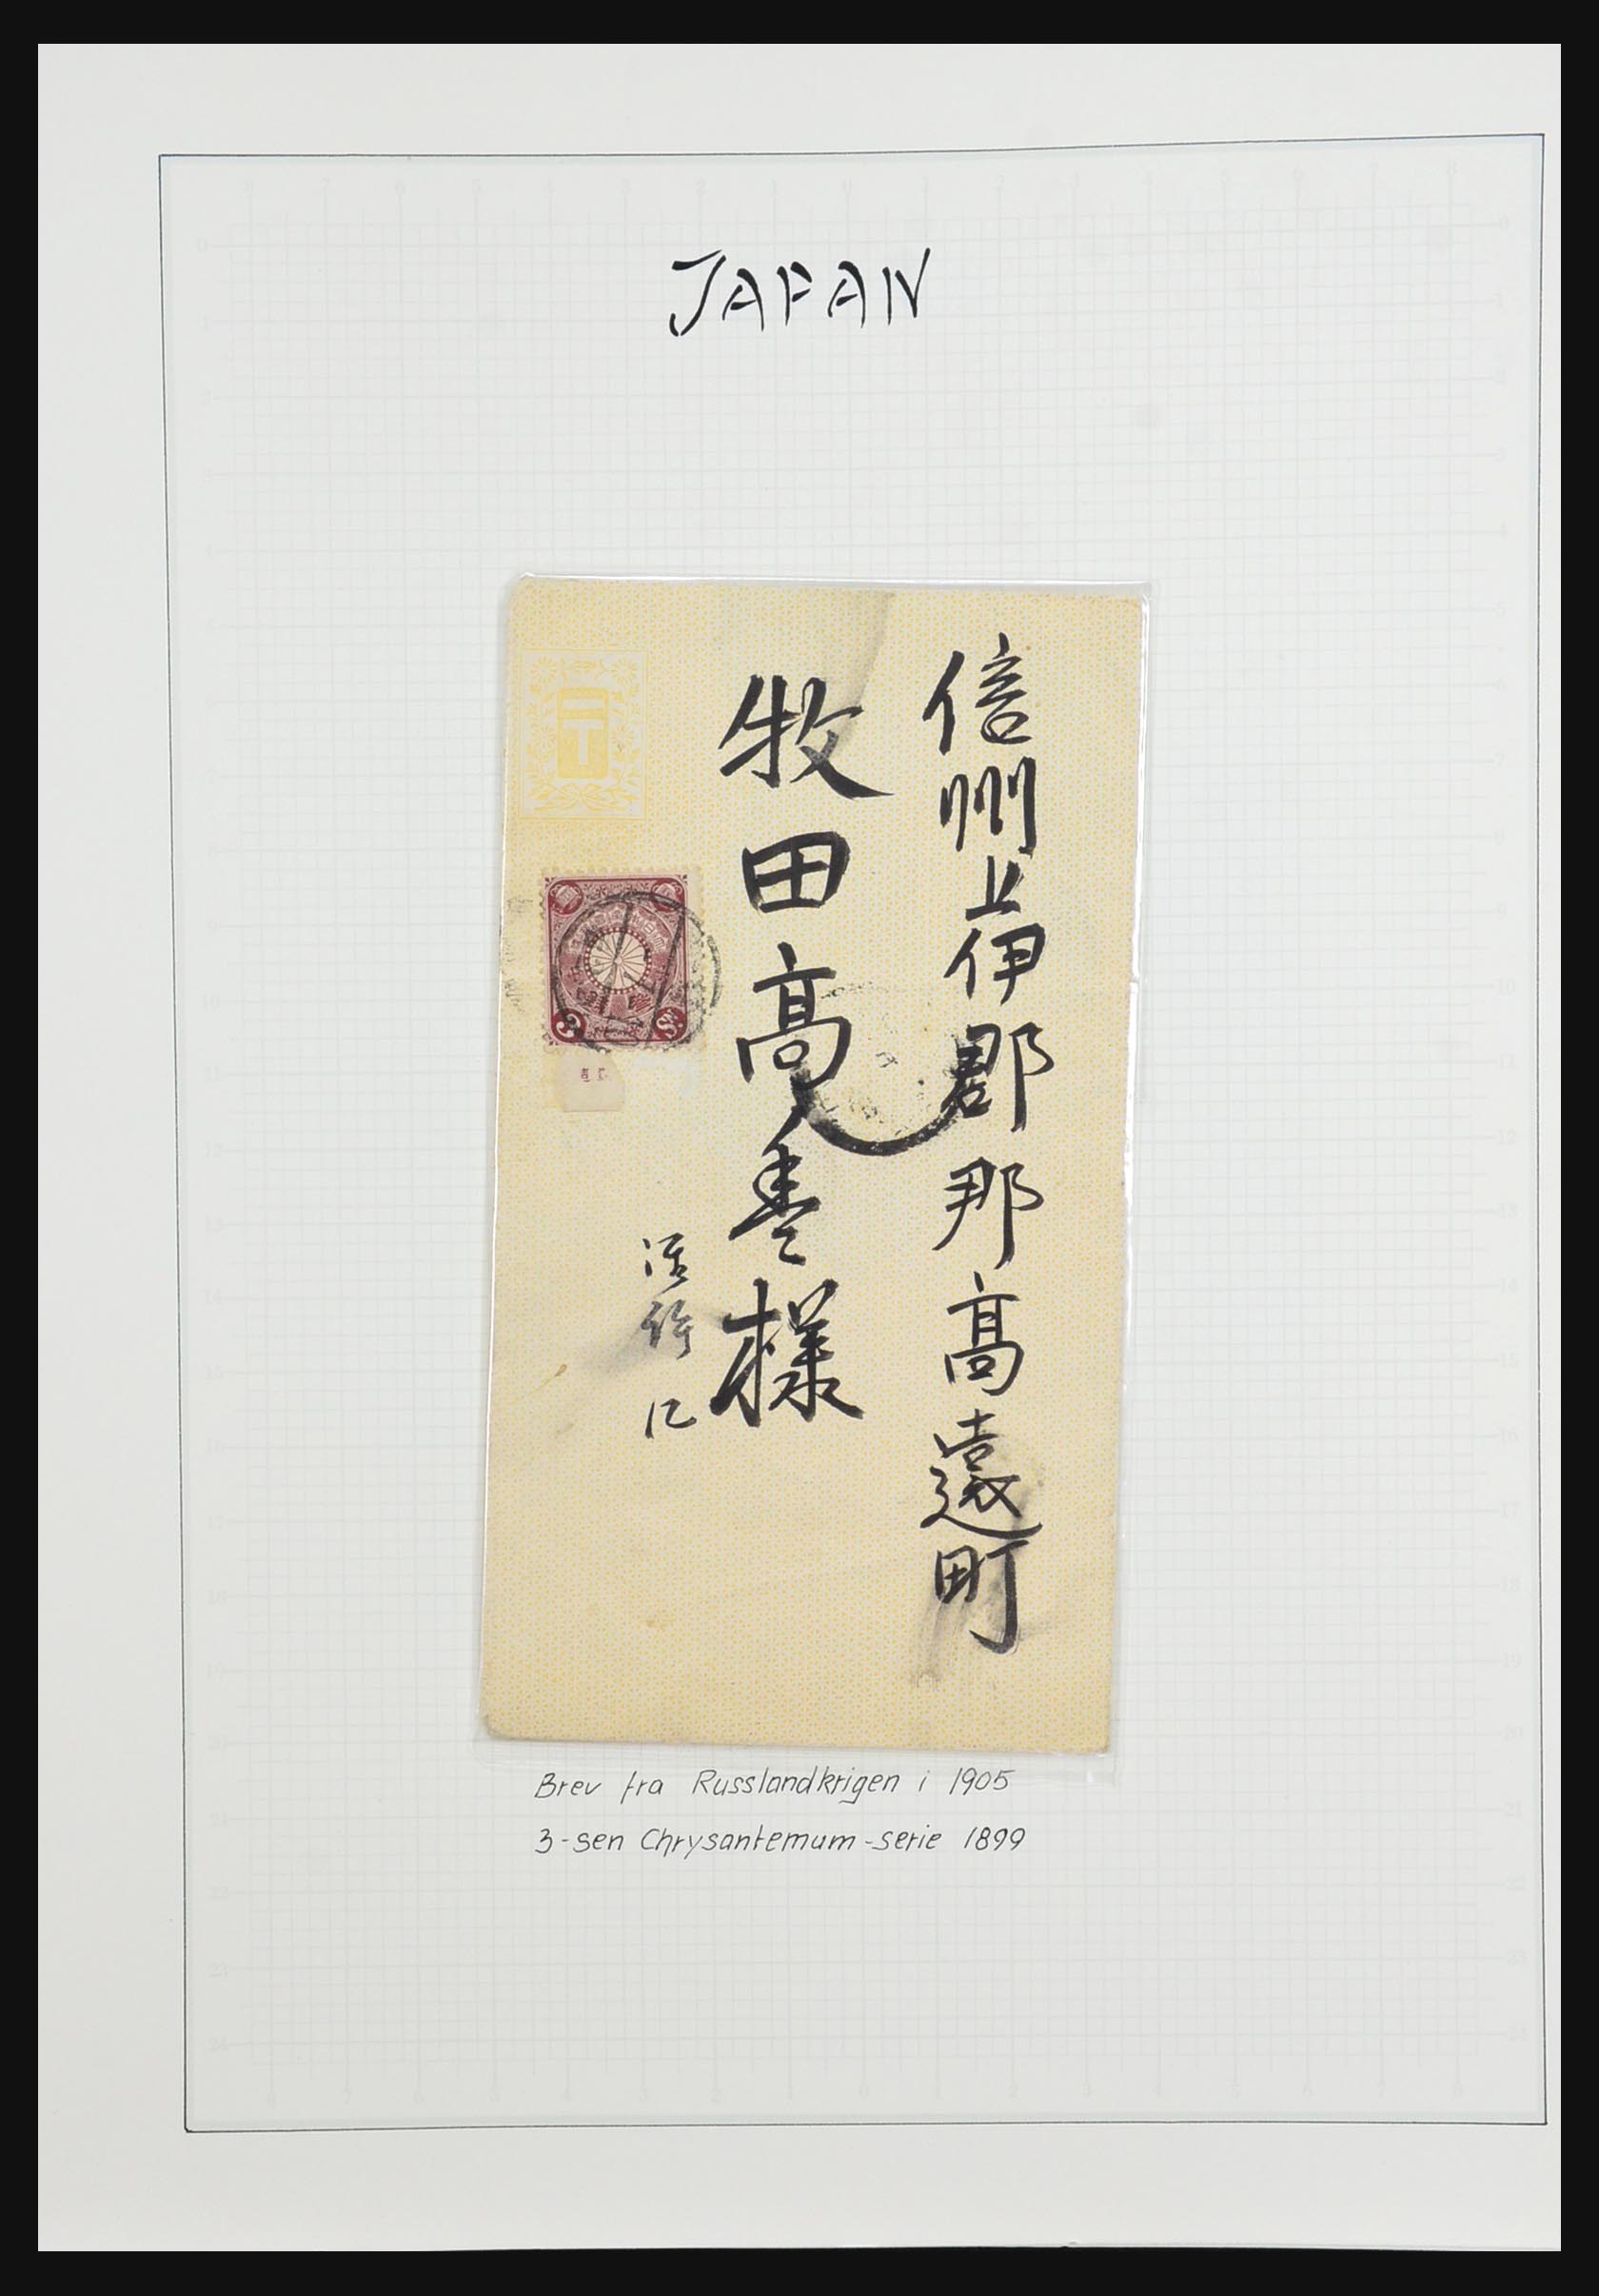 JAPAN
信州上伊郡那高遠町
牧田高壱様
Brev fra Russlandkrigen i 1905
3-sen Chrysantemum-serie 1899